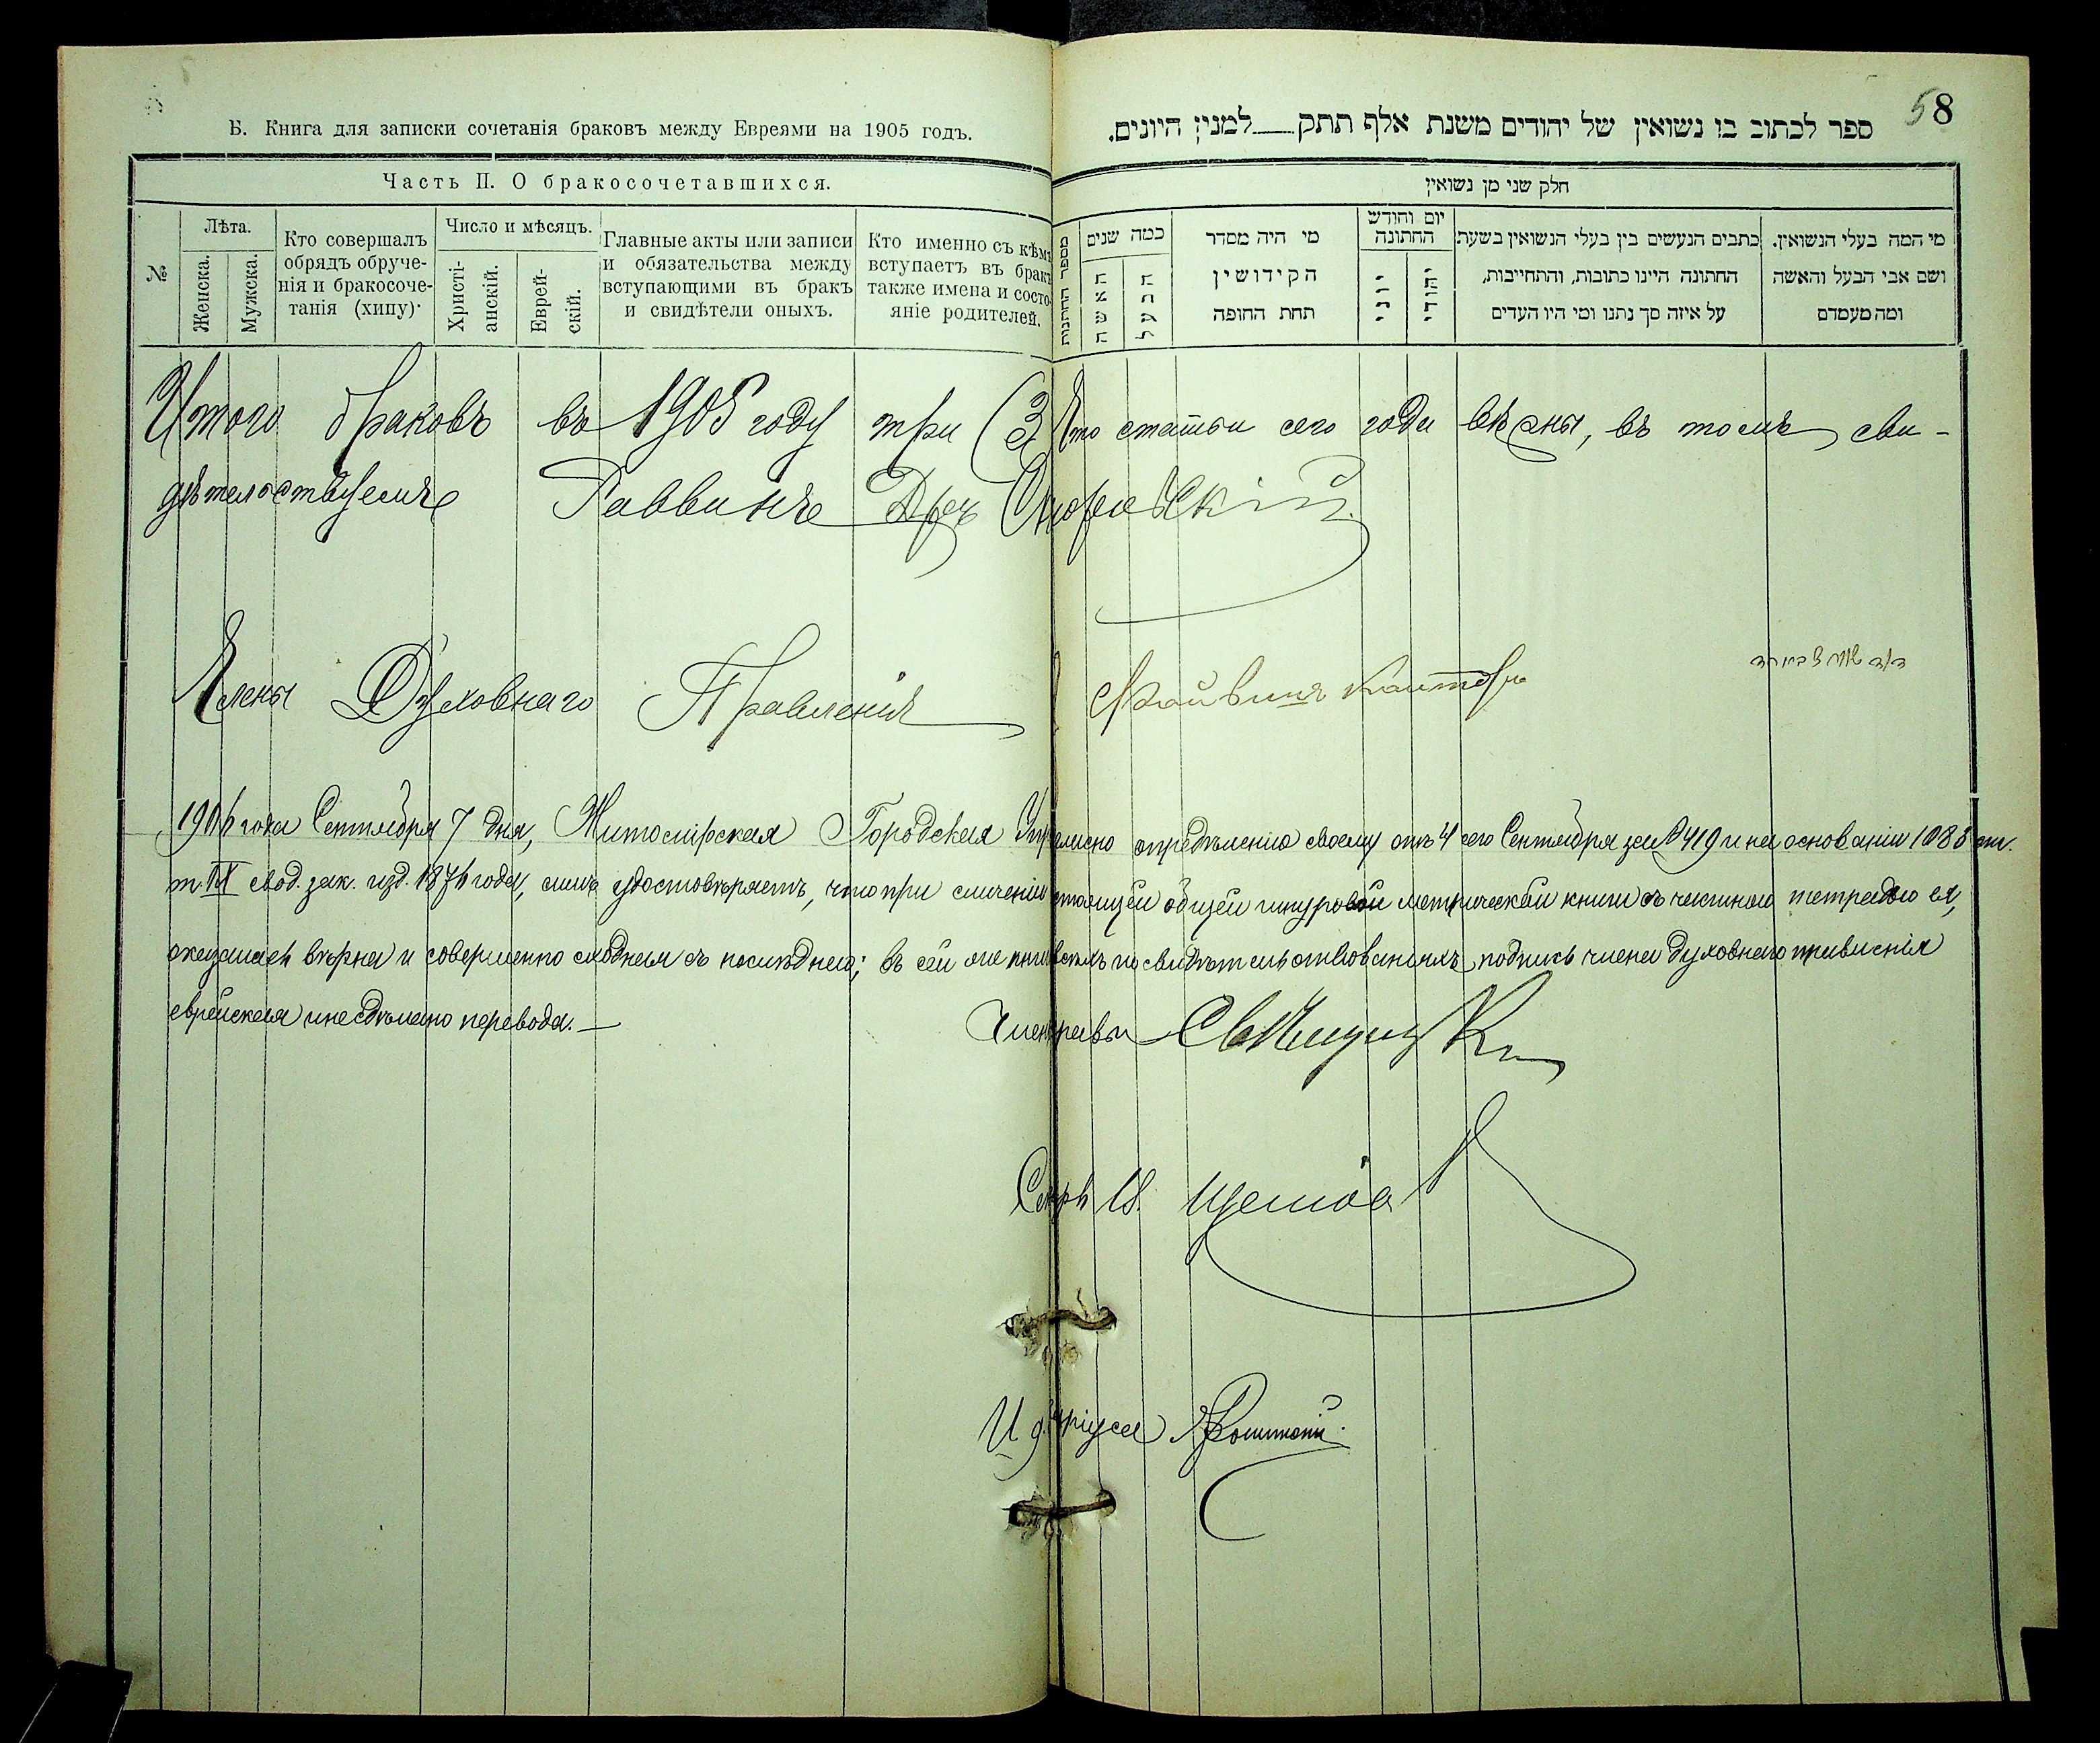 Б. Книга для записки сочетанія браковъ между Евреями на 1905 годъ.
Часть II. О бракосочетавшихся.
№
Лѣта.
Женска.
Мужска.
Кто совершалъ
обрядъ обруче-
нія и бракосоче-
танія (хипу)·
Число и мѣсяцъ.
Христі-
анскій.
Еврей-
скій.
Главные акты или записи
и обязательства между
вступающими въ бракъ
и свидѣтели оныхъ.
Кто именно съ кѣмъ
вступаетъ въ бракъ
также имена и состо-
яніе родителей.
58
ספר לכתוב בו נשואין של יהודים משנת אלף תתק למנין היונים.
חלק שני מן נשואין
מספר החתונות
כמה שנים
האשה
הבעל
מי היה מסדר
הקידושין
תחת החופה
יום וחודש
החתונה
יוני
יהודי
כתבים הנעשים בין בעלי הנשואין בשעת
החתונה היינו כתובות, והתחייבות,
על איזה סך נתנו ומי היו העדים
מי המה בעלי הנשואין.
ושם אבי הבעל והאשה
ומה מעמדם
Итого браковъ въ 1905 году три (3) Что статьи сего года вѣрны, въ томъ сви-
дѣтельствуемъ Раввинъ Др Скоревскій
Члены Духовнаго Правленія Файвишъ Канторъ
1906 года Сентября 7 дня, Житомірская Городская Управа согласно опредѣленію своему отъ 4 сего Сентября за № 419 и на основаніи 1088 ст.
т. IX свод. зак. изд. 1876 года, симъ удостовѣряетъ, что при сличеніи настоящей общей шнуровой метрической книги съ частною тетрадью ея,
оказалась вѣрна и совершенно сходная съ послѣднею; въ сей же книгѣ въ свидѣтельствованіяхъ подпись члена духовнаго правленія
еврейская и не сдѣлано перевода.
Член Управы
Секр.
И. д.